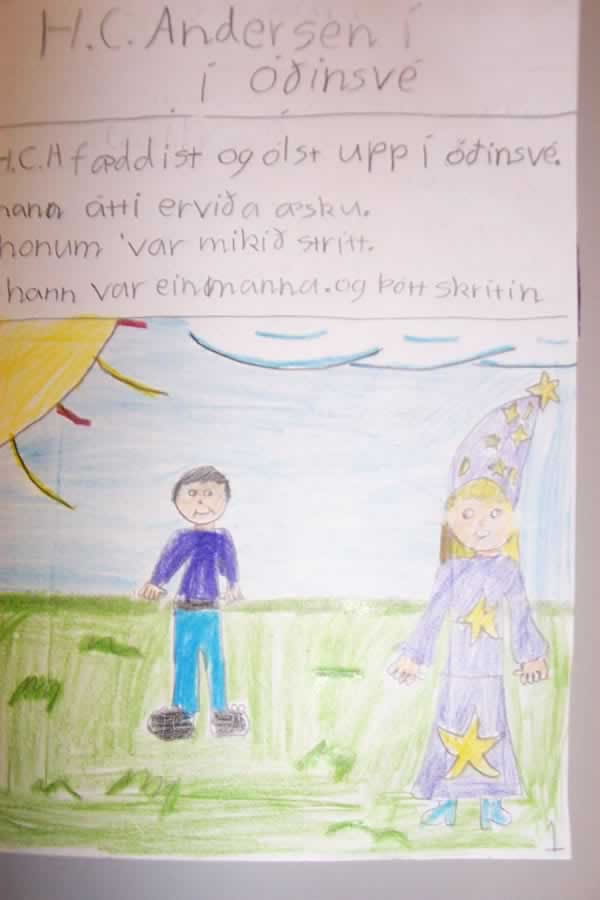 H.C. Andersen í
í óðinsvé
H.C.A fæddist og ólst upp í óðinsvé.
hann átti erviða æsku.
honum var mikið strítt.
hann var einmanna. og þótt skritin
1